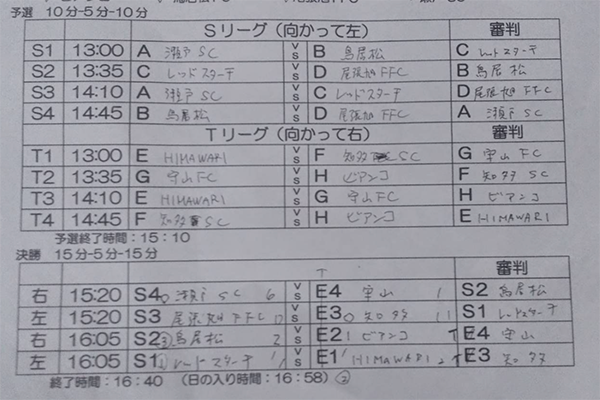 予選 10分-5分-10分
Sリーグ(向かって左) 審判
S1 13:00 A 瀬戸SC VS B 鳥居松 C レッドスターテ
S2 13:35 C レッドスターテ VS D 尾張旭FFC B 鳥居松
S3 14:10 A 瀬戸SC VS C レッドスターテ D 尾張旭FFC
S4 14:45 B 鳥居松 VS D 尾張旭FFC A 瀬戸SC
Tリーグ(向かって右) 審判
T1 13:00 E HIMAWARI VS F 知多SC G 守山FC
T2 13:35 G 守山FC VS H ビアンコ F 知多SC
T3 14:10 E HIMAWARI VS G 守山FC H ビアンコ
T4 14:45 F 知多SC VS H ビアンコ E HIMAWARI
予選終了時間:15:10
決勝 15分-5分-15分
T 審判
右 15:20 S4 瀬戸SC 6 VS E4 守山 1 S2 鳥居松
左 15:20 S3 尾張旭FFC VS E3 知多 S1 レッドスターテ
右 16:05 S2 鳥居松 2 VS E2 ビアンコ E4 守山
左 16:05 S1 レッドスターテ VS E1 HIMAWARI E3 知多
終了時間:16:40 (日の入り時間:16:58)